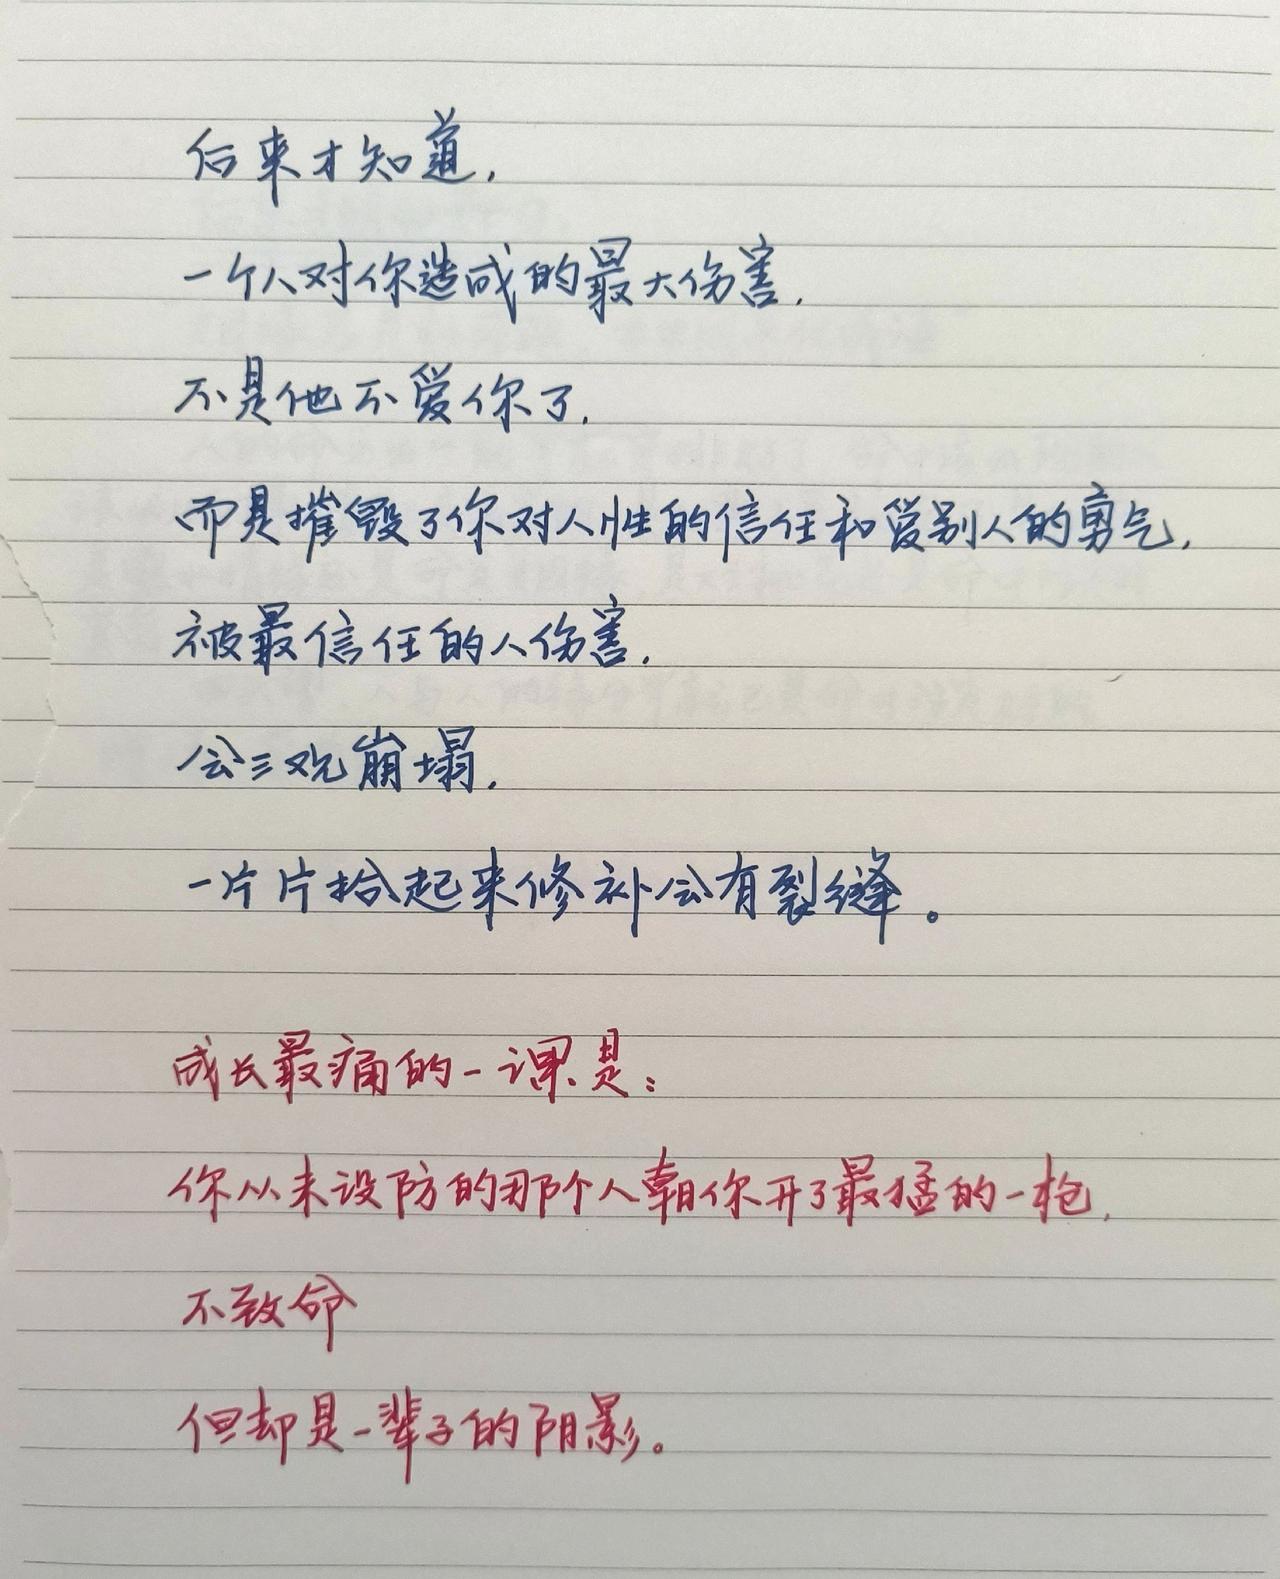 后来才知道，
一个人对你造成的最大伤害，
不是他不爱你了，
而是摧毁了你对人性的信任和爱别人的勇气，
被最信任的人伤害，
会三观崩塌，
一片片拾起来修补会有裂缝。
成长最痛的一课是：
你从未设防的那个人朝你开了最猛的一枪，
不致命
但却是一辈子的阴影。